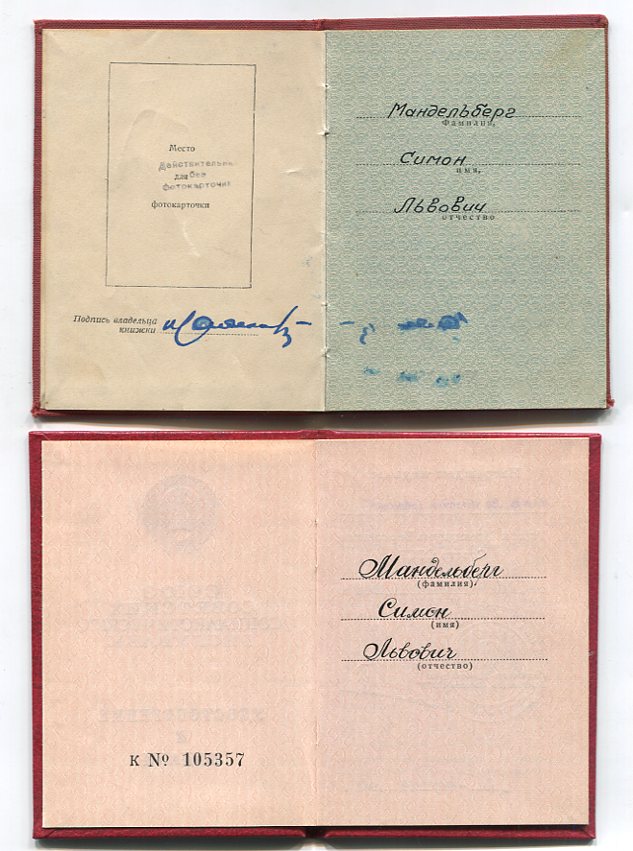 Место
Действительно
для без
фотокарточки
фотокарточки
Подпись владельца
книжки
Мандельберг
Фамилия,
Симон
имя,
Львович
отчество
К № 105357
Мандельберг
(фамилия)
Симон
(имя)
Львович
(отчество)